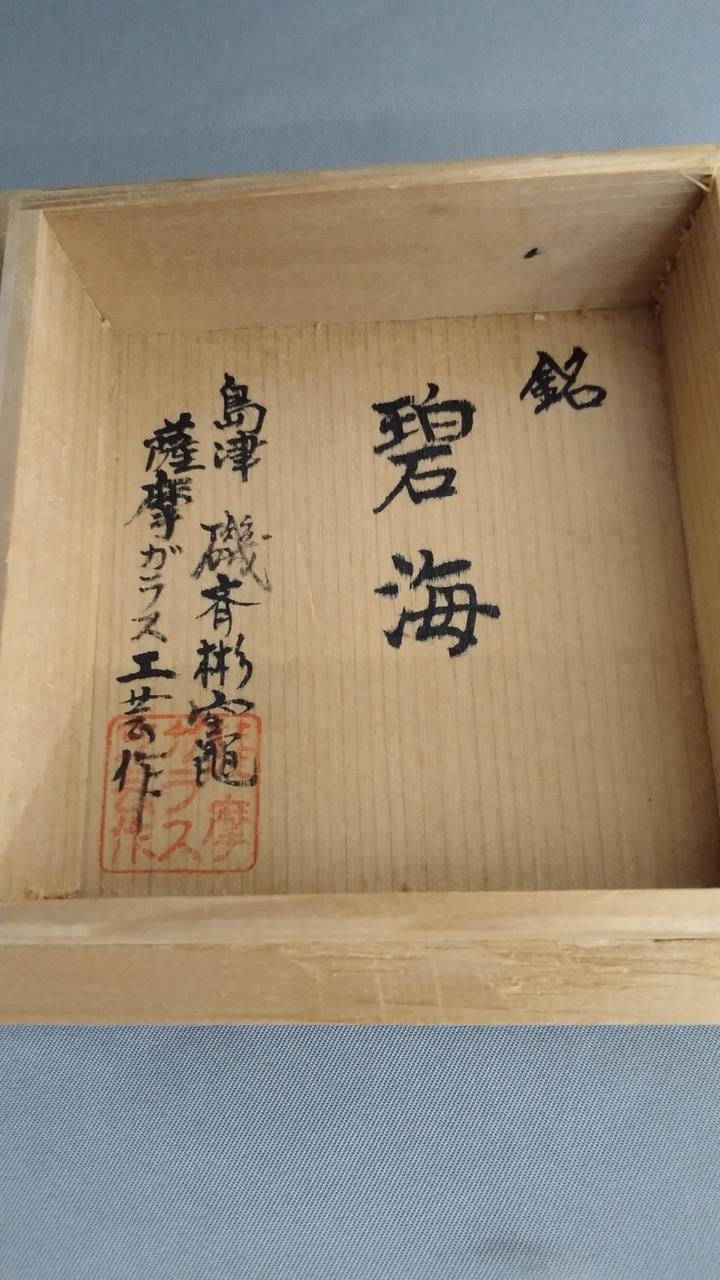 銘
碧海
島津 磯斉彬窯
薩摩ガラス工芸作
薩摩
ガラス